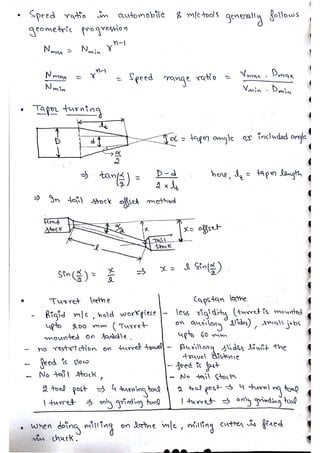 • Speed ratio in automobile & m/c tools generally follows
geometric progression
Nmax = Nmin r^n-1
Nmax / Nmin = r^n-1 = Speed range ratio = Vmax . Dmax / Vmin . Dmin
• Taper turning
lt
D d α = taper angle or included angle
α/2
⇒ tan(α/2) = D-d / 2 x lt here, lt = taper length
⇒ In tail stock offset method
Head Stock α/2 x x = offset
l Tail Stock
Sin(α/2) = x/l ⇒ x = l Sin(α/2)
Turret lathe Capstan lathe
- Rigid m/c, hold workpiece - less rigidity (turret is mounted
upto 200 mm (Turret on auxiliary slides), small jobs
mounted on saddle. upto 60 mm
- no restriction on turret travel - Auxiliary slides limit the
travel distance
- feed is slow - feed is fast
- No tail stock, - No tail stock
2 tool post ⇒ 4 turning tool 2 tool post ⇒ 4 turning tool
1 turret ⇒ only grinding tool 1 turret ⇒ only grinding tool
• when doing milling on lathe m/c, milling cutter is fixed
in chuck.